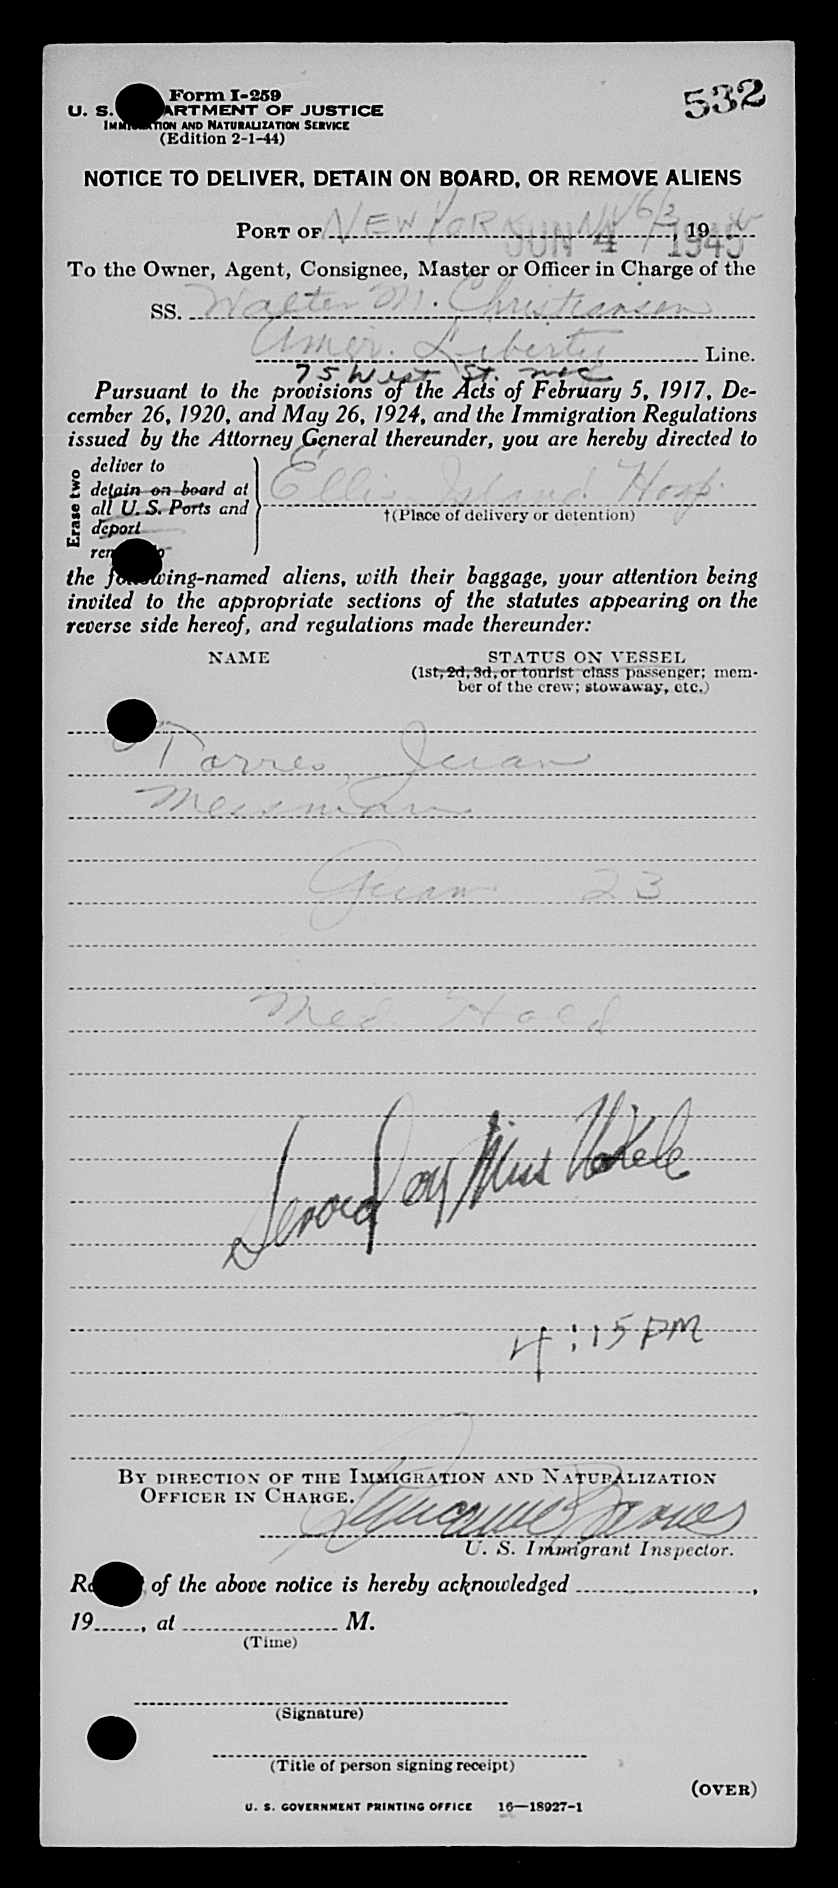 Form I-259
532
U. S. ARTMENT OF JUSTICE
IMMIGRATION AND NATURALIZATION SERVICE
(Edition 2-1-44)
NOTICE TO DELIVER, DETAIN ON BOARD, OR REMOVE ALIENS
PORT OF NEW YORK N.Y 6/3, 19
JUN 4 1945
To the Owner, Agent, Consignee, Master or Officer in Charge of the
SS. Walter M. Christiansen
Amer. Liberty Line.
75 West St. NYC
Pursuant to the provisions of the Acts of February 5, 1917, De-
cember 26, 1920, and May 26, 1924, and the Immigration Regulations
issued by the Attorney General thereunder, you are hereby directed to
Erase two
deliver to
detain on board at
all U. S. Ports and
deport
Ellis Island Hosp.
†(Place of delivery or detention)
the following-named aliens, with their baggage, your attention being
invited to the appropriate sections of the statutes appearing on the
reverse side hereof, and regulations made thereunder:
NAME STATUS ON VESSEL
(1st, 2d, 3d, or tourist class passenger; mem-
ber of the crew; stowaway, etc.)
Torres, Juan
Messman
Guam 23
Med. Hold
Served on Miss
4:15 PM
BY DIRECTION OF THE IMMIGRATION AND NATURALIZATION
OFFICER IN CHARGE.
U. S. Immigrant Inspector.
of the above notice is hereby acknowledged ,
19 , at M.
(Time)
(Signature)
(Title of person signing receipt)
(OVER)
U. S. GOVERNMENT PRINTING OFFICE 16—18927-1